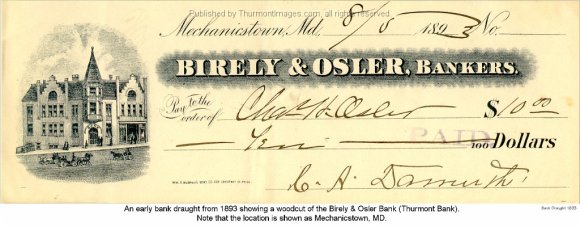 Published by ThurmontImages.com, all rights reserved
Mechanicstown, Md. 8/8 1893 No.
BIRELY & OSLER, BANKERS.
Pay to the order of Chas H Osler $10.00
Ten 100 Dollars
PAID
C. A. Damuth
An early bank draught from 1893 showing a woodcut of the Birely & Osler Bank (Thurmont Bank).
Note that the location is shown as Mechanicstown, MD.
Bank Draught 1893